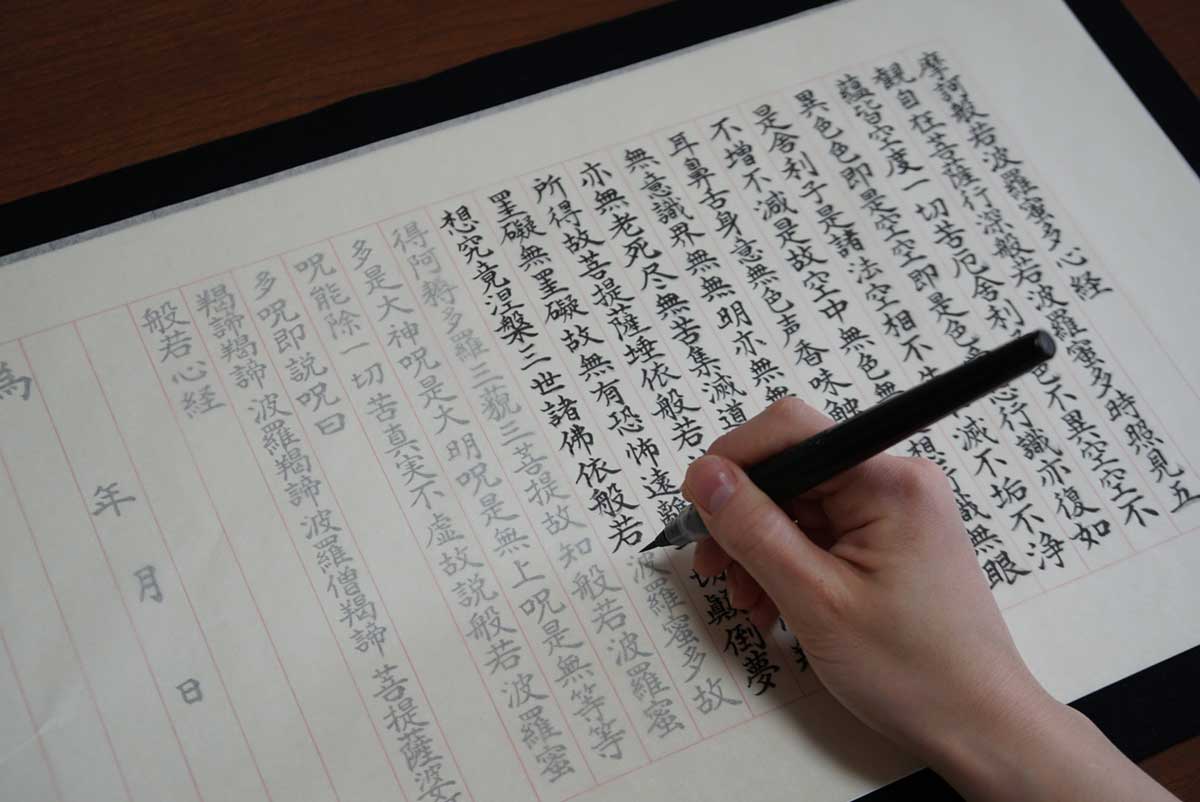 摩訶般若波羅蜜多心経
観自在菩薩行深般若波羅蜜多時照見五
蘊皆空度一切苦厄舎利色不異空空不
異色色即是空空即是色行識亦復如
是舎利子是諸法空相不滅不垢不浄
不増不減是故空中無色無想行識無眼
耳鼻舌身意無色声香味触
無意識界無無明亦無無
亦無老死尽無苦集滅道
所得故菩提薩埵依般若
罣礙無罣礙故無有恐怖遠離切顛倒夢
想究竟涅槃三世諸佛依般若波羅蜜多故
得阿耨多羅三藐三菩提故知般若波羅蜜
多是大神呪是大明呪是無上呪是無等等
呪能除一切苦真実不虚故説般若波羅蜜
多呪即説呪曰
羯諦羯諦 波羅羯諦 波羅僧羯諦 菩提薩婆
般若心経
年 月 日
為